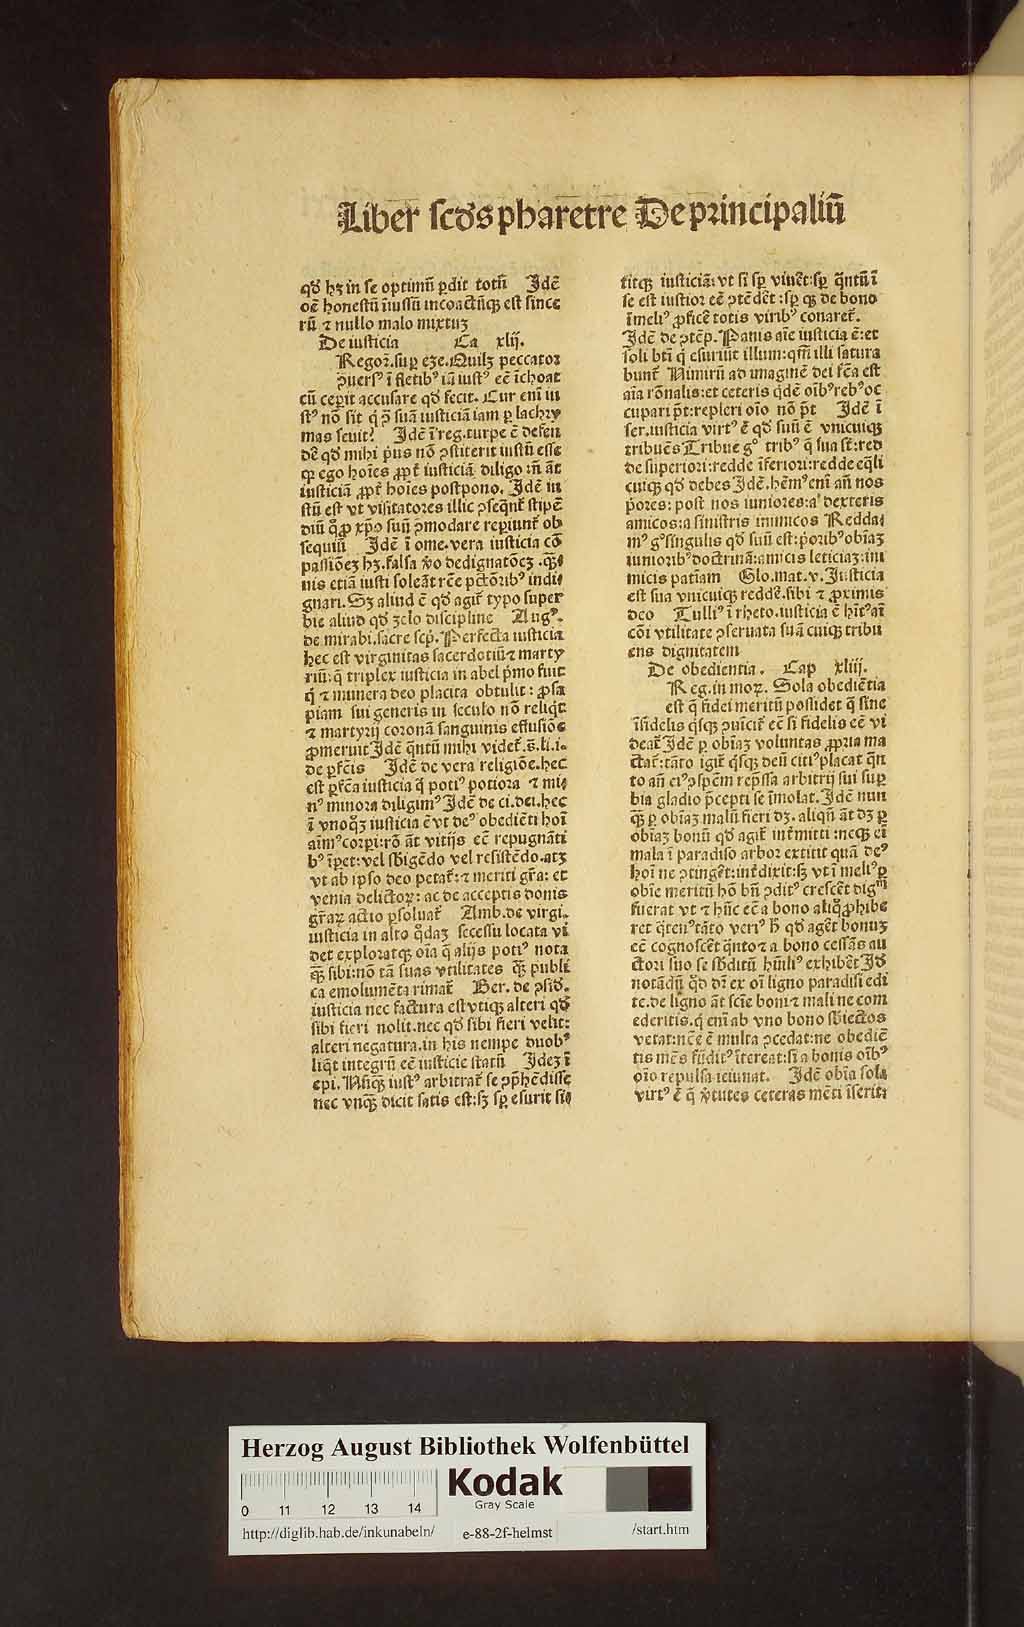 Liber scd's pharetre De principaliū
qd' hz in se optimū ꝑdit totū Jdē
oē honestū iniussū incoactūqꝫ est since
rū ⁊ nullo malo mixtuꝫ
De iusticia Ca xlij.
Regoꝛ. suꝑ eze. Quilꝫ peccatoꝛ
ꝯuersꝰ ī fletibꝰ iā iustꝰ eē īchoat
cū ceperit accusare qd' fecit. Cur enī iu
stꝰ nō sit q̄ ꝓ suā iusticiā iam ꝑ lachry
mas seuit? Jdē ī reg. turpe ē defen
dē qd' mihi pͥus nō ꝯstiterit iustū esse
qꝛ ego hoīes ꝓpt̄ iusticiā diligo: nō āt
iusticiā ꝓpt̄ hoīes postpono. Jdē iu
stū est vt visitatores illic ꝯseqn̄t̄ stipē
diū q̊ ꝓ xp̄o suū ꝯmodare reꝑiunt̄ ob
sequiū Jdē ī ome. vera iusticia cō
passiōeꝫ hꝫ. falsa v̊o dedignatōeꝫ. qꝫ
uis etiā iusti soleāt rēe pctōribꝰ indi
gnari. Sꝫ aliud ē qd' agit̄ typo super
bie aliud qd' zelo discipline Augꝰ.
de mirabi. sacre scp̄. Perfecta iusticia
hec est virginitas sacerdotiū ⁊ marty
riū: q̄ triplex iusticia in abel pͥmo fuit
q̄ ⁊ munera deo placita obtulit: ꝓsa
piam sui generis in seculo nō reliqͥt
⁊ martyrij coronā sanguinis effusiōe
ꝓmeruit Jdē qn̄tū mihi videt̄. s. li. i.
de ꝑfc̄is Jdē de vera religiōe. hec
est ꝑfc̄a iusticia q̄ potiꝰ potiora ⁊ mi
nꝰ minora diligimꝰ Jdē de ci. dei. hec
ī vnoqꝫ iusticia ē vt deꝰ obediēti hoī
aīmꝰ corpi: rō āt vitijs eē repugnāti
bꝰ īpet: vel sb'igēdo vel resistēdo. atꝫ
vt ab ipso deo petat̄: ⁊ meriti grā: et
venia delictoꝝ: ac de acceptis donis
grāꝝ actio ꝑsoluat̄ Amb. de virgi.
iusticia in alto q̇daꝫ secessu locata vi
det exploratqꝫ oīa q̄ alijs potiꝰ nota
qꝫ sibi: nō tā suas vtilitates qꝫ publi
ca emolumēta rimat̄ Ber. de ꝯsid'.
iusticia nec factura est vtiqꝫ alteri qd'
sibi fieri nolit. nec qd' sibi fieri velit:
alteri negatura. in his nempe duobꝰ
liqͥt integrū eē iusticie statū Jdeꝫ ī
epi. Nūqꝫ iustꝰ arbitrat̄ se ꝯp̄hēdisse
nec vnqꝫ dicit satis est: sꝫ sꝑ esurit si
titqꝫ iusticiā: vt si sꝑ viuēt: sꝑ qn̄tū ī
se est iustior eē ꝯtēdēt: sꝑ qꝫ de bono
ī meliꝰ ꝓficē totis viribꝰ conaret̄.
Jdē de ꝯtēp. Panis aīe iusticia ē: et
soli bt̄i q̄ esuriūt illum: qm̄ illi satura
bunt̄ Nimirū ad imaginē dei fc̄a est
aīa rōnalis: et ceteris qͥdē oībꝰ rebꝰ oc
cupari pt̄: repleri oīo nō pt̄ Jdē ī
ser. iusticia virtꝰ ē qd' suū ē vnicuiqꝫ
tribuēs Tribue gͦ tribꝰ q̄ sua st̄: red
de superiori: redde īferiori: redde eq̄li
cuiqꝫ qd' debes Jdē. hēmꝰ enī an̄ nos
pͥores: post nos iuniores: a dexteris
amicos: a sinistris inimicos Redda
mꝰ gͦ singulis qd' suū est: pͥoribꝰ obīaꝫ
iunioribꝰ doctrinā: amicis leticiaꝫ: ini
micis patīam Glo. mat. v. Justicia
est sua vnicuiqꝫ reddē. sibi ⁊ ꝓximis
deo Tulliꝰ ī rheto. iusticia ē hītꝰ aī
cōi vtilitate ꝯseruata suā cuiqꝫ tribu
ens dignitatem
De obedientia. Cap xliij.
Reg. in moꝝ. Sola obediētia
est q̄ fidei meritū possidet q̄ sine
īfidelis qͥsqꝫ ꝯuincit̄ eē si fidelis eē vi
deat̄ Jdē ꝑ obīaꝫ voluntas ꝓpria ma
ctat̄: tāto igit̄ qͥsqꝫ deū citiꝰ placat qn̄
to an̄ eiꝰ ꝯspēm rep̄ssa arbitrij sui suꝑ
bia gladio p̄cepti se īmolat. Jdē nun
qꝫ ꝑ obīaꝫ malū fieri dꝫ. aliqn̄ āt dꝫ ꝑ
obīaꝫ bonū qd' agit̄ int̄mitti: neqꝫ eī
mala ī paradiso arbor extitit quā deꝰ
hoī ne ꝯtingēt: int̄dixit: sꝫ vt ī meliꝰ ꝑ
obīe meritū hō bn̄ ꝯditꝰ crescēt dignͥ
fuerat vt ⁊ hūc eē a bono aliq̊ ꝓhibe
ret qͥtenꝰ tāto veriꝰ h̄ qd' agēt bonuꝫ
eē cognoscēt qn̄to ⁊ a bono cessās au
ctori suo se sb'ditū hūiliꝰ exhibēt Jd'
notādū qd' dr̄ ex oī ligno paradisi edi
te. de ligno āt scīe boni ⁊ mali ne com
ederitis. q̄ enī ab vno bono sb'iectos
vetat: ncē ē multa ꝯcedat: ne obediē
tis mēs fūditꝰ ītereat: si a bonis oībꝰ
oīo repulsa ieiunat. Jdē obīa sola
virtꝰ ē q̄ v̊tutes ceteras mēti īserit:
Herzog August Bibliothek Wolfenbüttel
0 11 12 13 14
Kodak
Gray Scale
http://diglib.hab.de/inkunabeln/ e-88-2f-helmst /start.htm